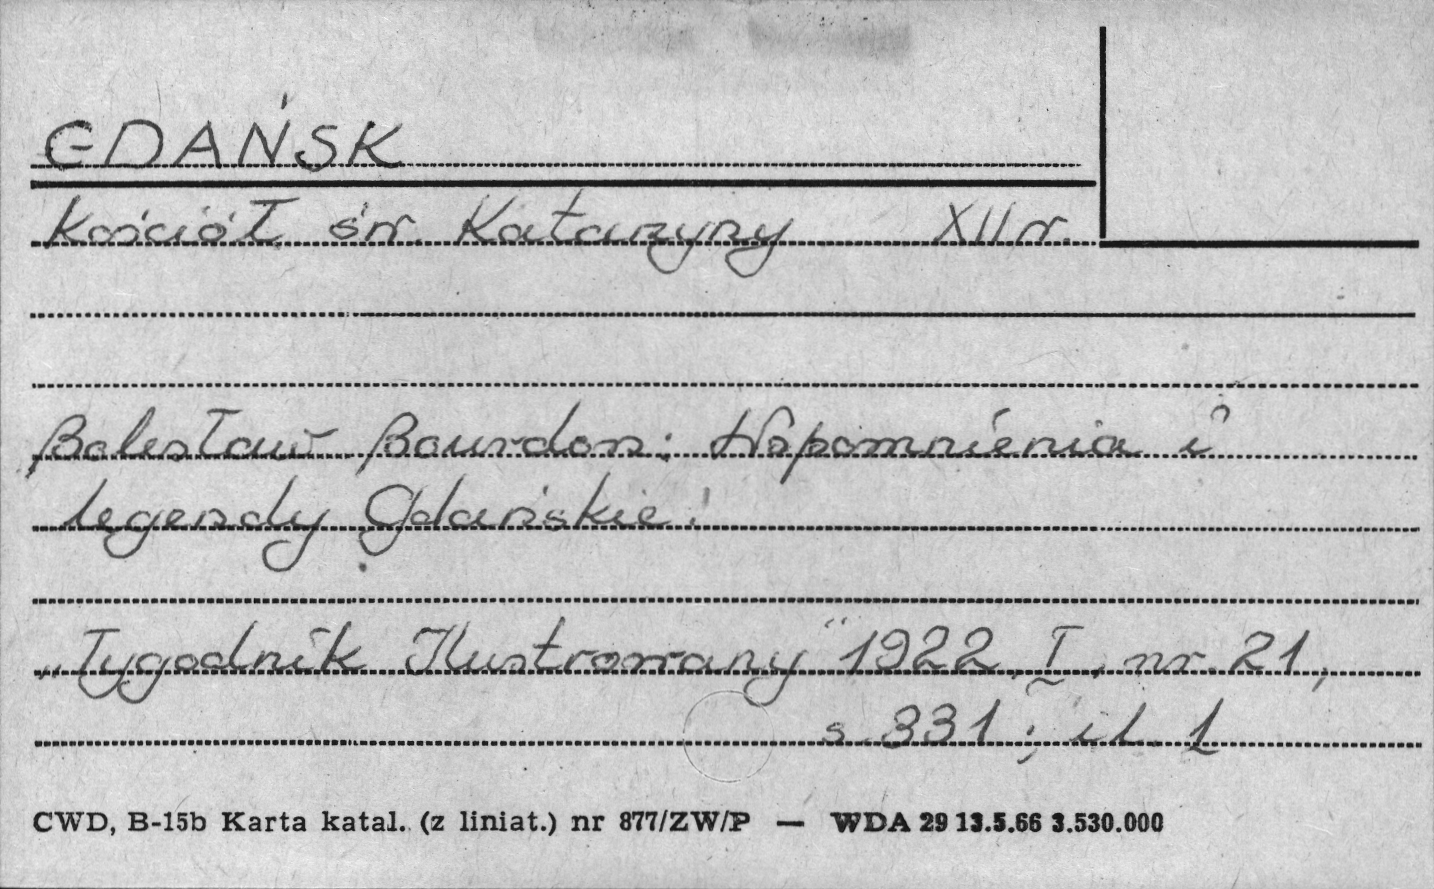 GDAŃSK
Kościół św. Katarzyny XII w.
Bolesław Bourdon: Wspomnienia i
legendy Gdańskie.
„Tygodnik Ilustrowany" 1922, I, nr. 21,
s. 331; il. 1
CWD, B-15b Karta katal. (z liniat.) nr 877/ZW/P — WDA 29 13.5.66 3.530.000